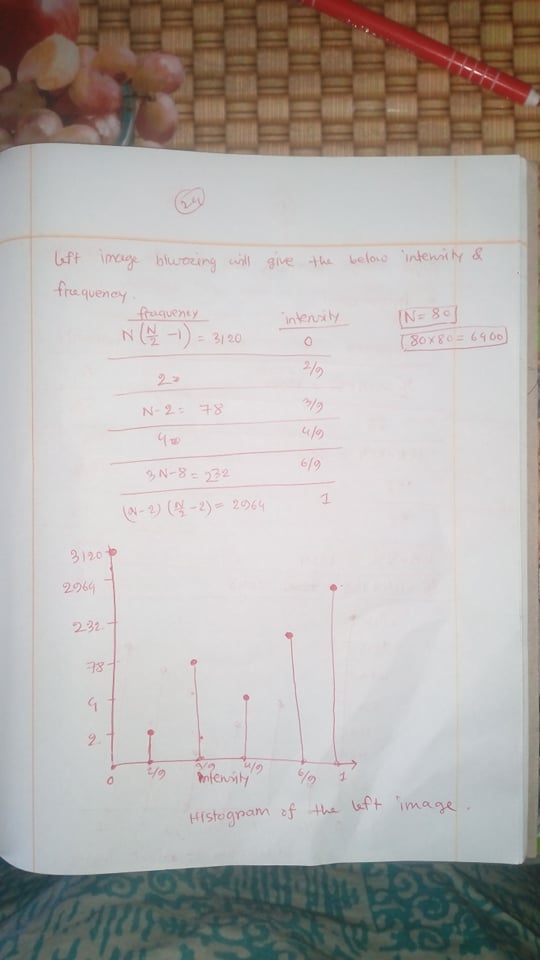 2.4
Left image blurring will give the below intensity &
frequency.
frequency intensity
N(N/2 -1) = 3120 0
2 2/9
N-2 = 78 3/9
4 4/9
3N-8 = 232 6/9
(N-2) (N/2 -2) = 2964 1
N = 80
80×80 = 6400
3120
2964
232
78
4
2
0 2/9 3/9 4/9 6/9 1
Intensity
Histogram of the left image.